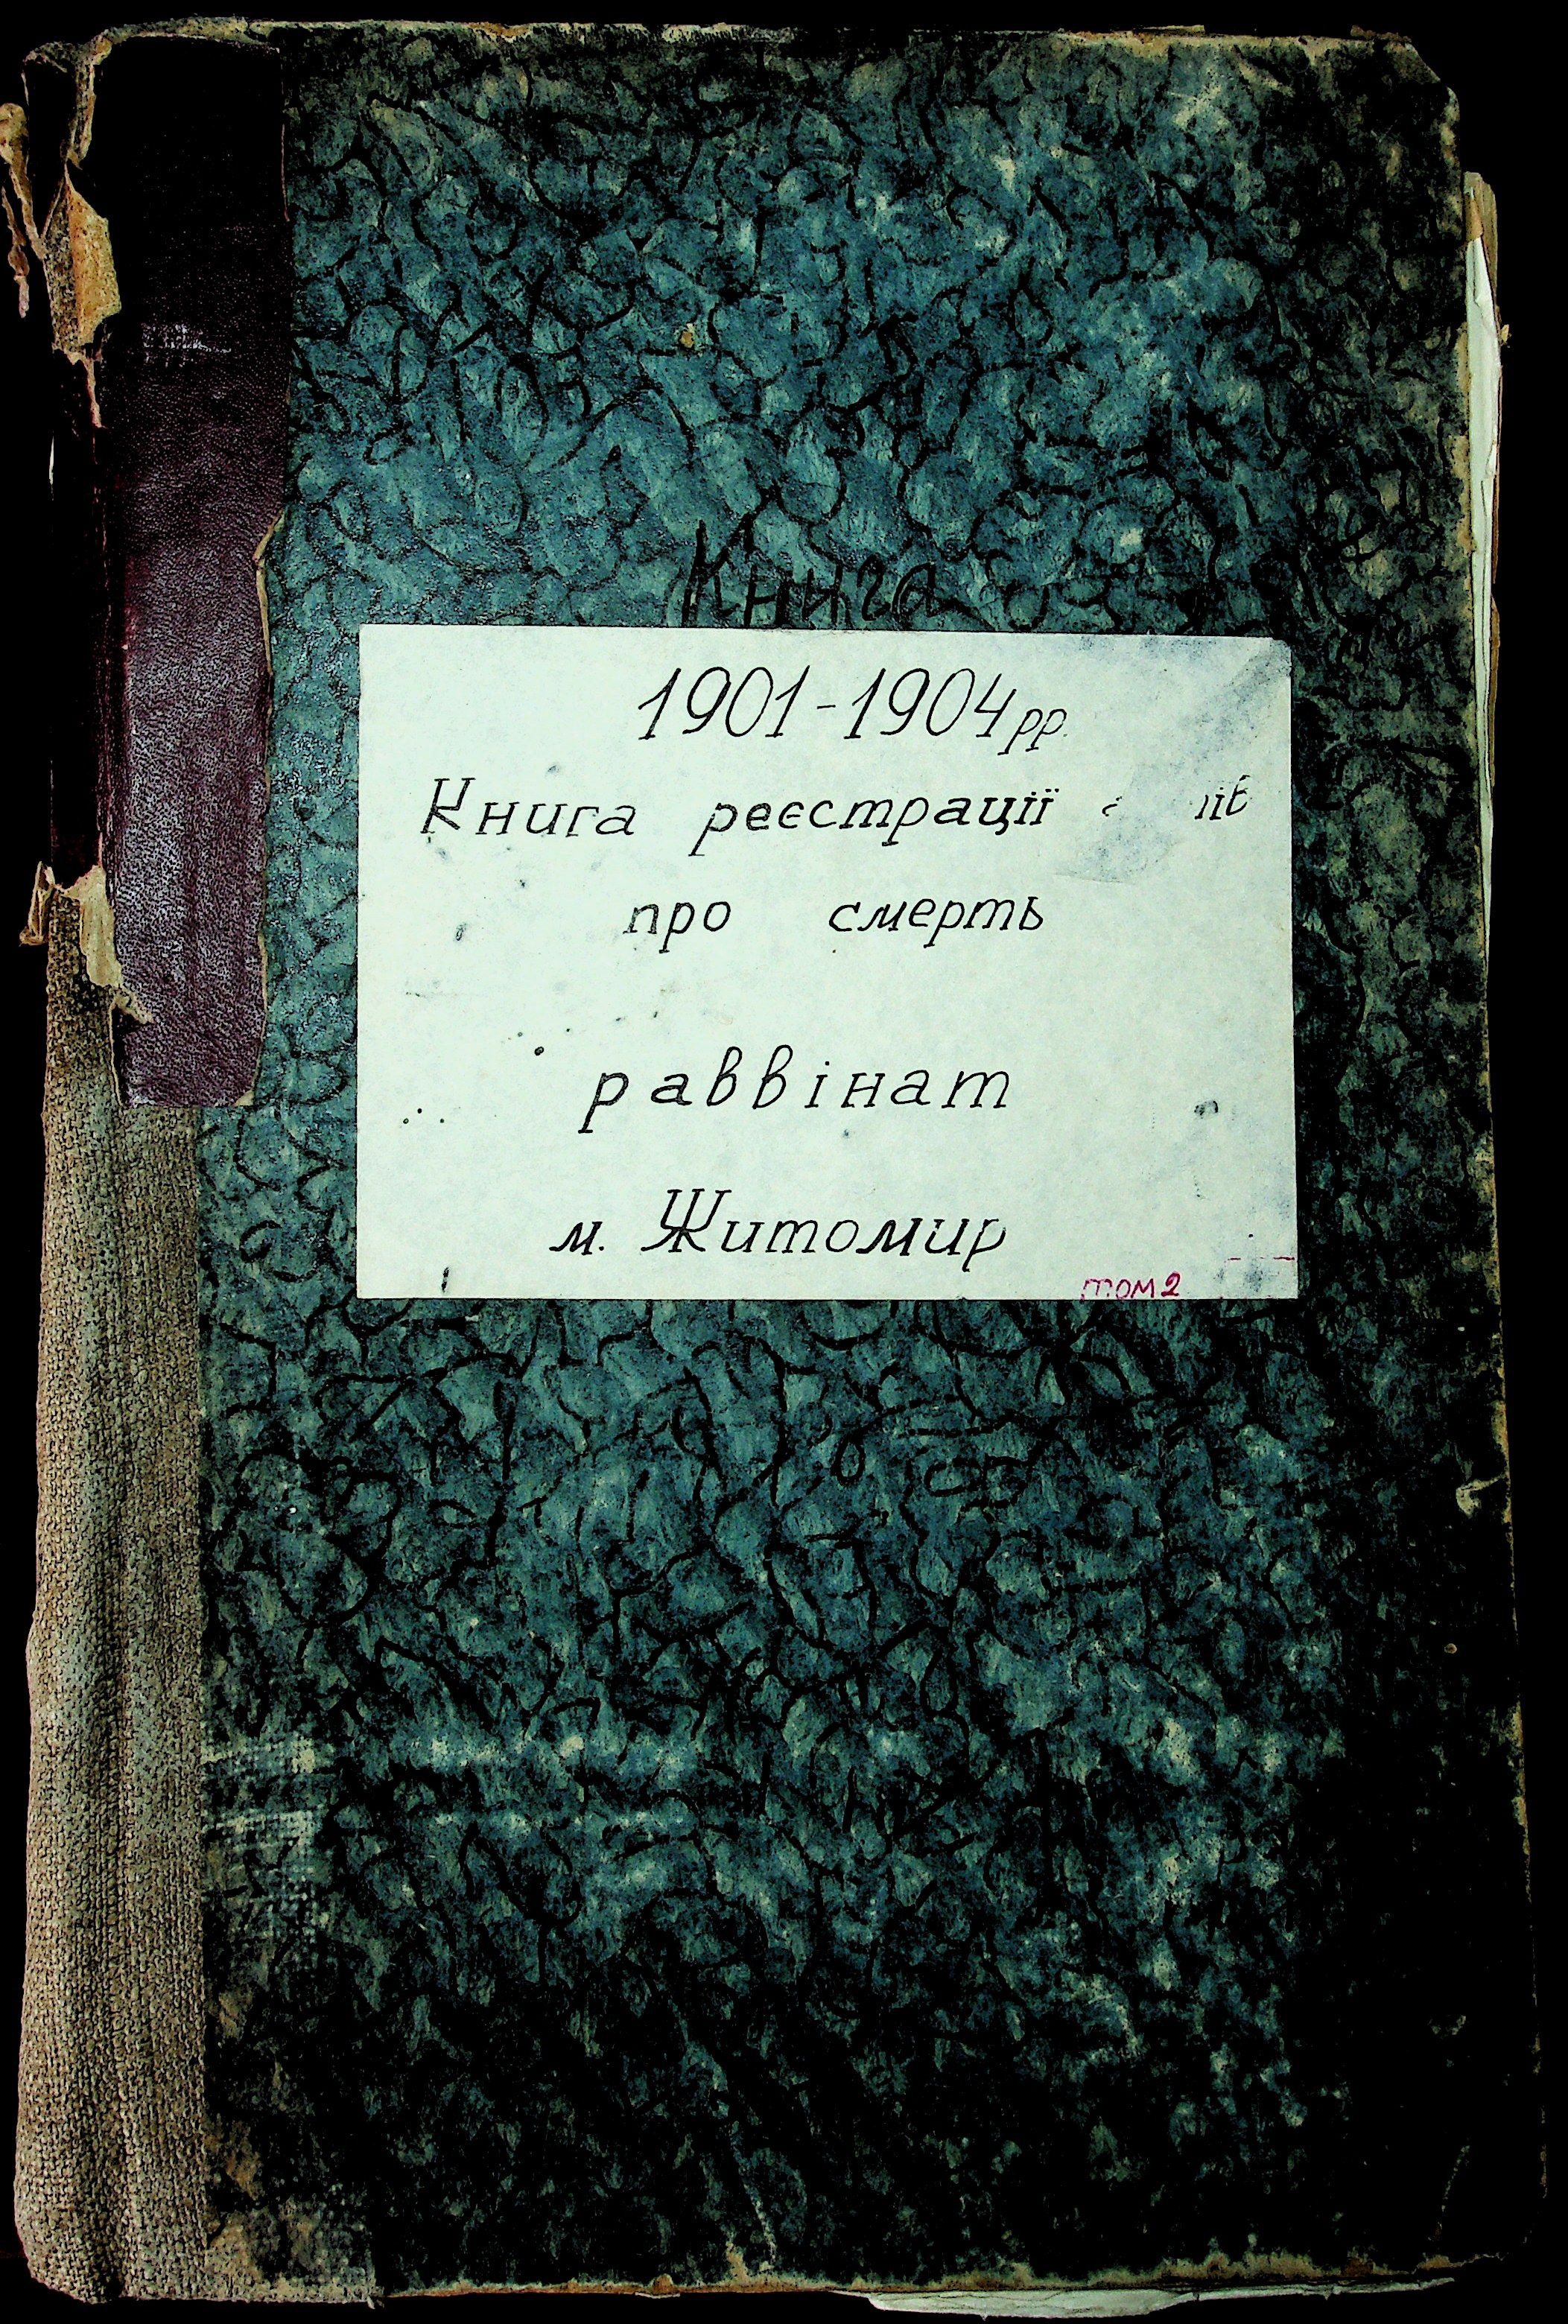 Книга
1901-1904 рр.
Книга реєстрації
про смерть
раввінат
м. Житомир
том 2